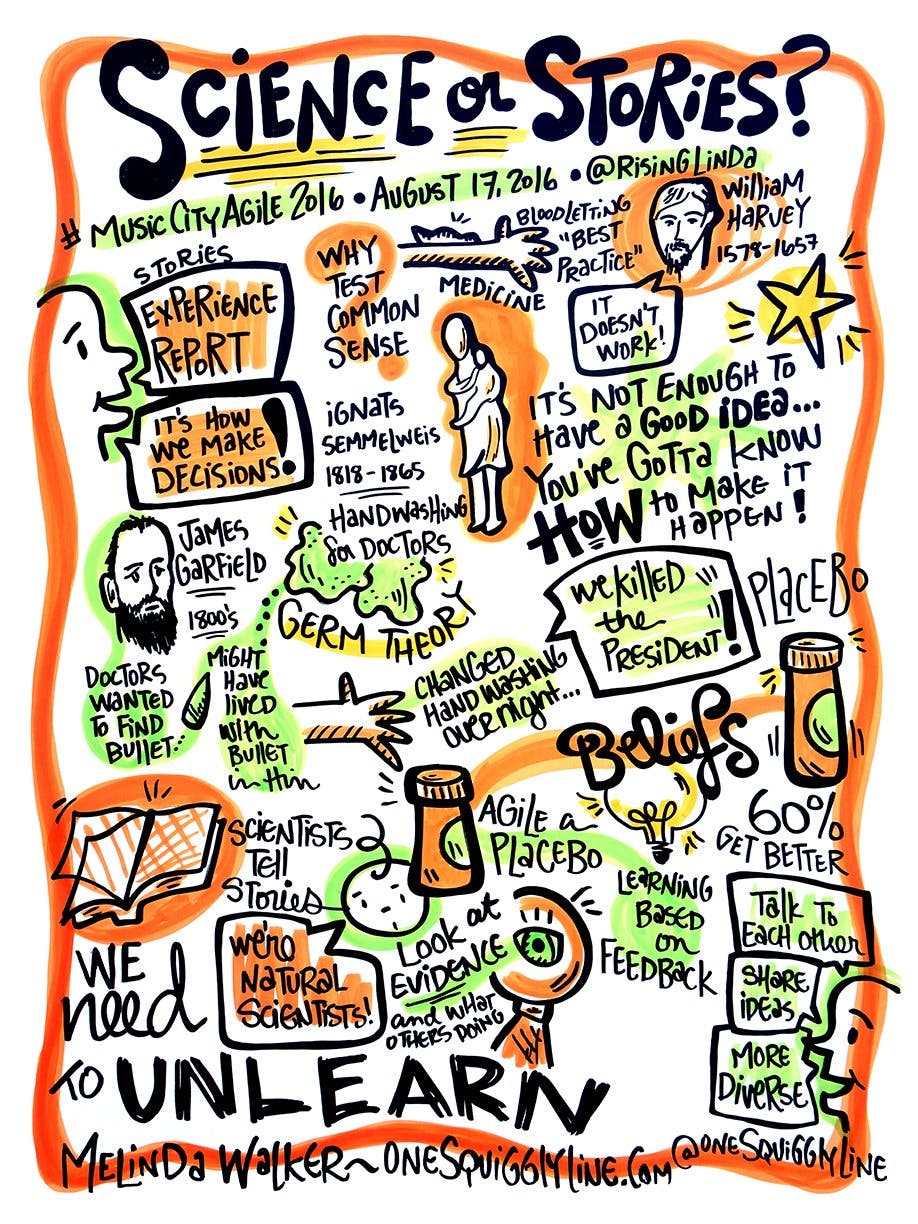 SCIENCE OR STORIES?
# MUSIC CITY AGILE 2016 • AUGUST 17, 2016 • @RISINGLINDA
STORIES
EXPERIENCE
REPORT
IT'S HOW
WE MAKE
DECISIONS!
WHY
TEST
COMMON
SENSE
BLOODLETTING
"BEST
PRACTICE"
MEDICINE
WILLIAM
HARVEY
1578-1657
IT
DOESN'T
WORK!
IGNATS
SEMMELWEIS
1818-1865
HANDWASHING
for DOCTORS
GERM THEORY
IT'S NOT ENOUGH TO
HAVE A GOOD IDEA...
YOU'VE GOTTA KNOW
HOW TO MAKE IT
HAPPEN!
JAMES
GARFIELD
1800's
DOCTORS
WANTED
TO FIND
BULLET
MIGHT
HAVE
LIVED
WITH
BULLET
in him
CHANGED
HANDWASHING
overnight...
WE KILLED
the
PRESIDENT!
PLACEBO
Beliefs
60%
GET BETTER
AGILE a
PLACEBO
LEARNING
BASED
on
FEEDBACK
SCIENTISTS
TELL
STORIES
WE'RE
NATURAL
SCIENTISTS!
LOOK at
EVIDENCE
and WHAT
OTHERS DOING
TALK TO
EACH OTHER
SHARE
IDEAS
MORE
DIVERSE
WE
need
TO UNLEARN
MELINDA WALKER~ONESQUIGGLYLINE.COM @ONESQUIGGLYLINE